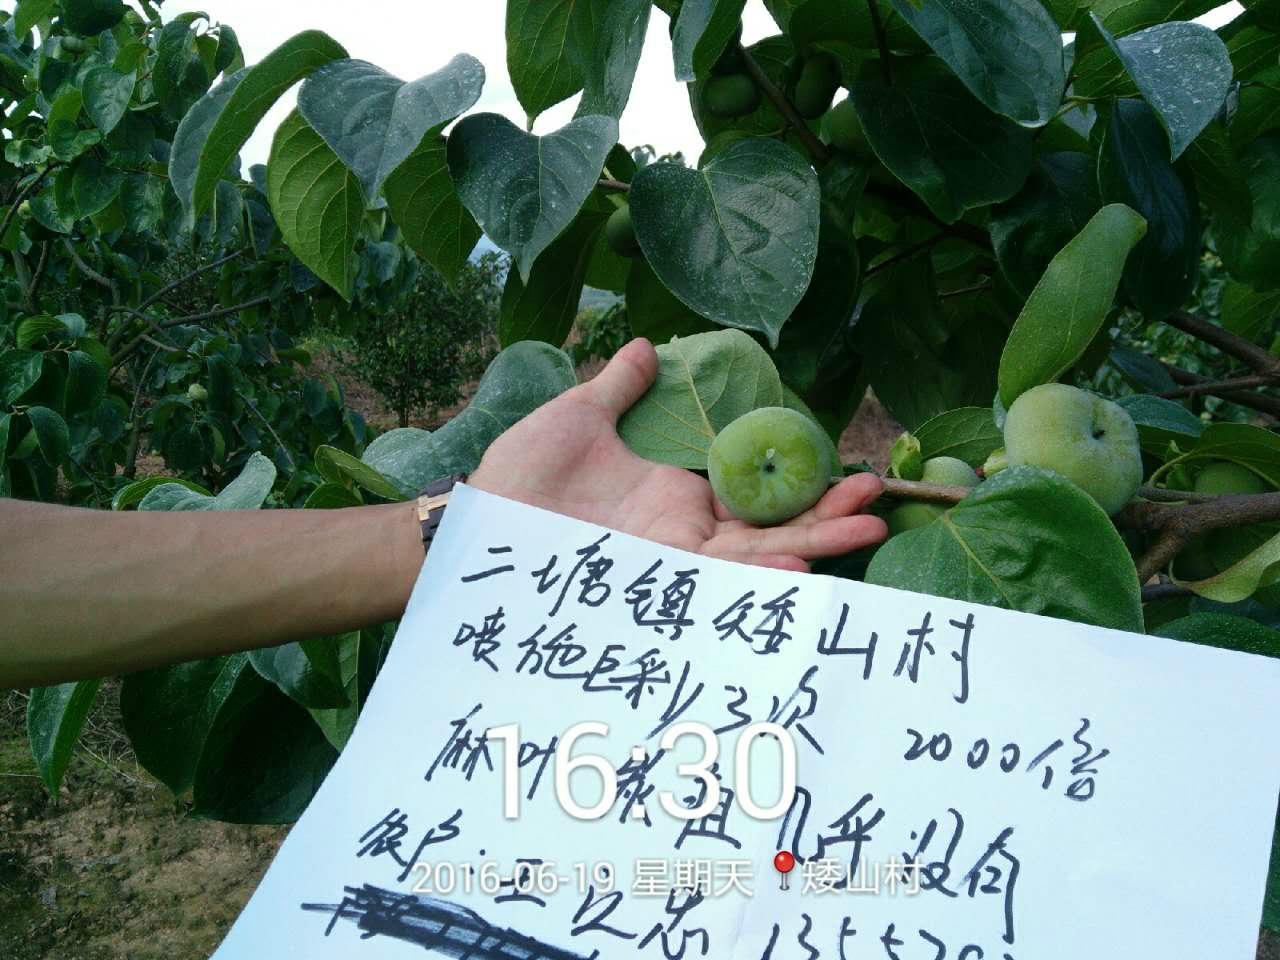 二塘镇矮山村
喷施巨彩 3次 2000倍
麻叶 炭疽几乎没有
16:30
农户:王 忠 135520
2016-06-19 星期天 矮山村